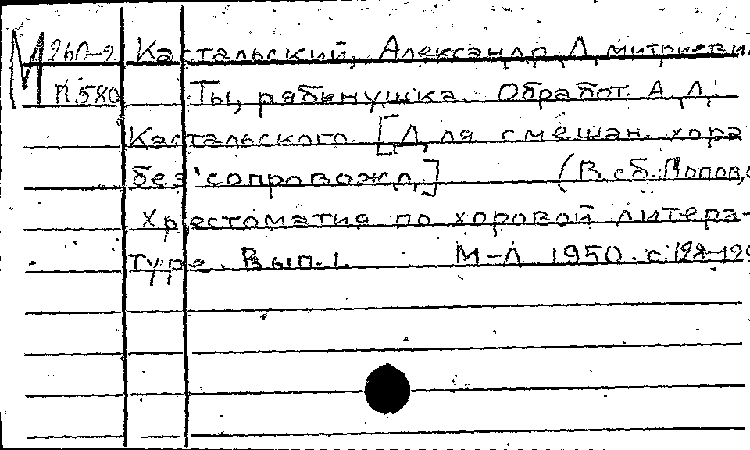 М 260-2 Кастальский, Александр Дмитриевич
П 580 Ты, рябинушка. Обработ. А.Д.
Кастальского. [Для смешан. хора
без сопровожд.] (В сб.: Попов,
Хрестоматия по хоровой литера-
туре. Вып. 1. М-Л. 1950. с. 198-199